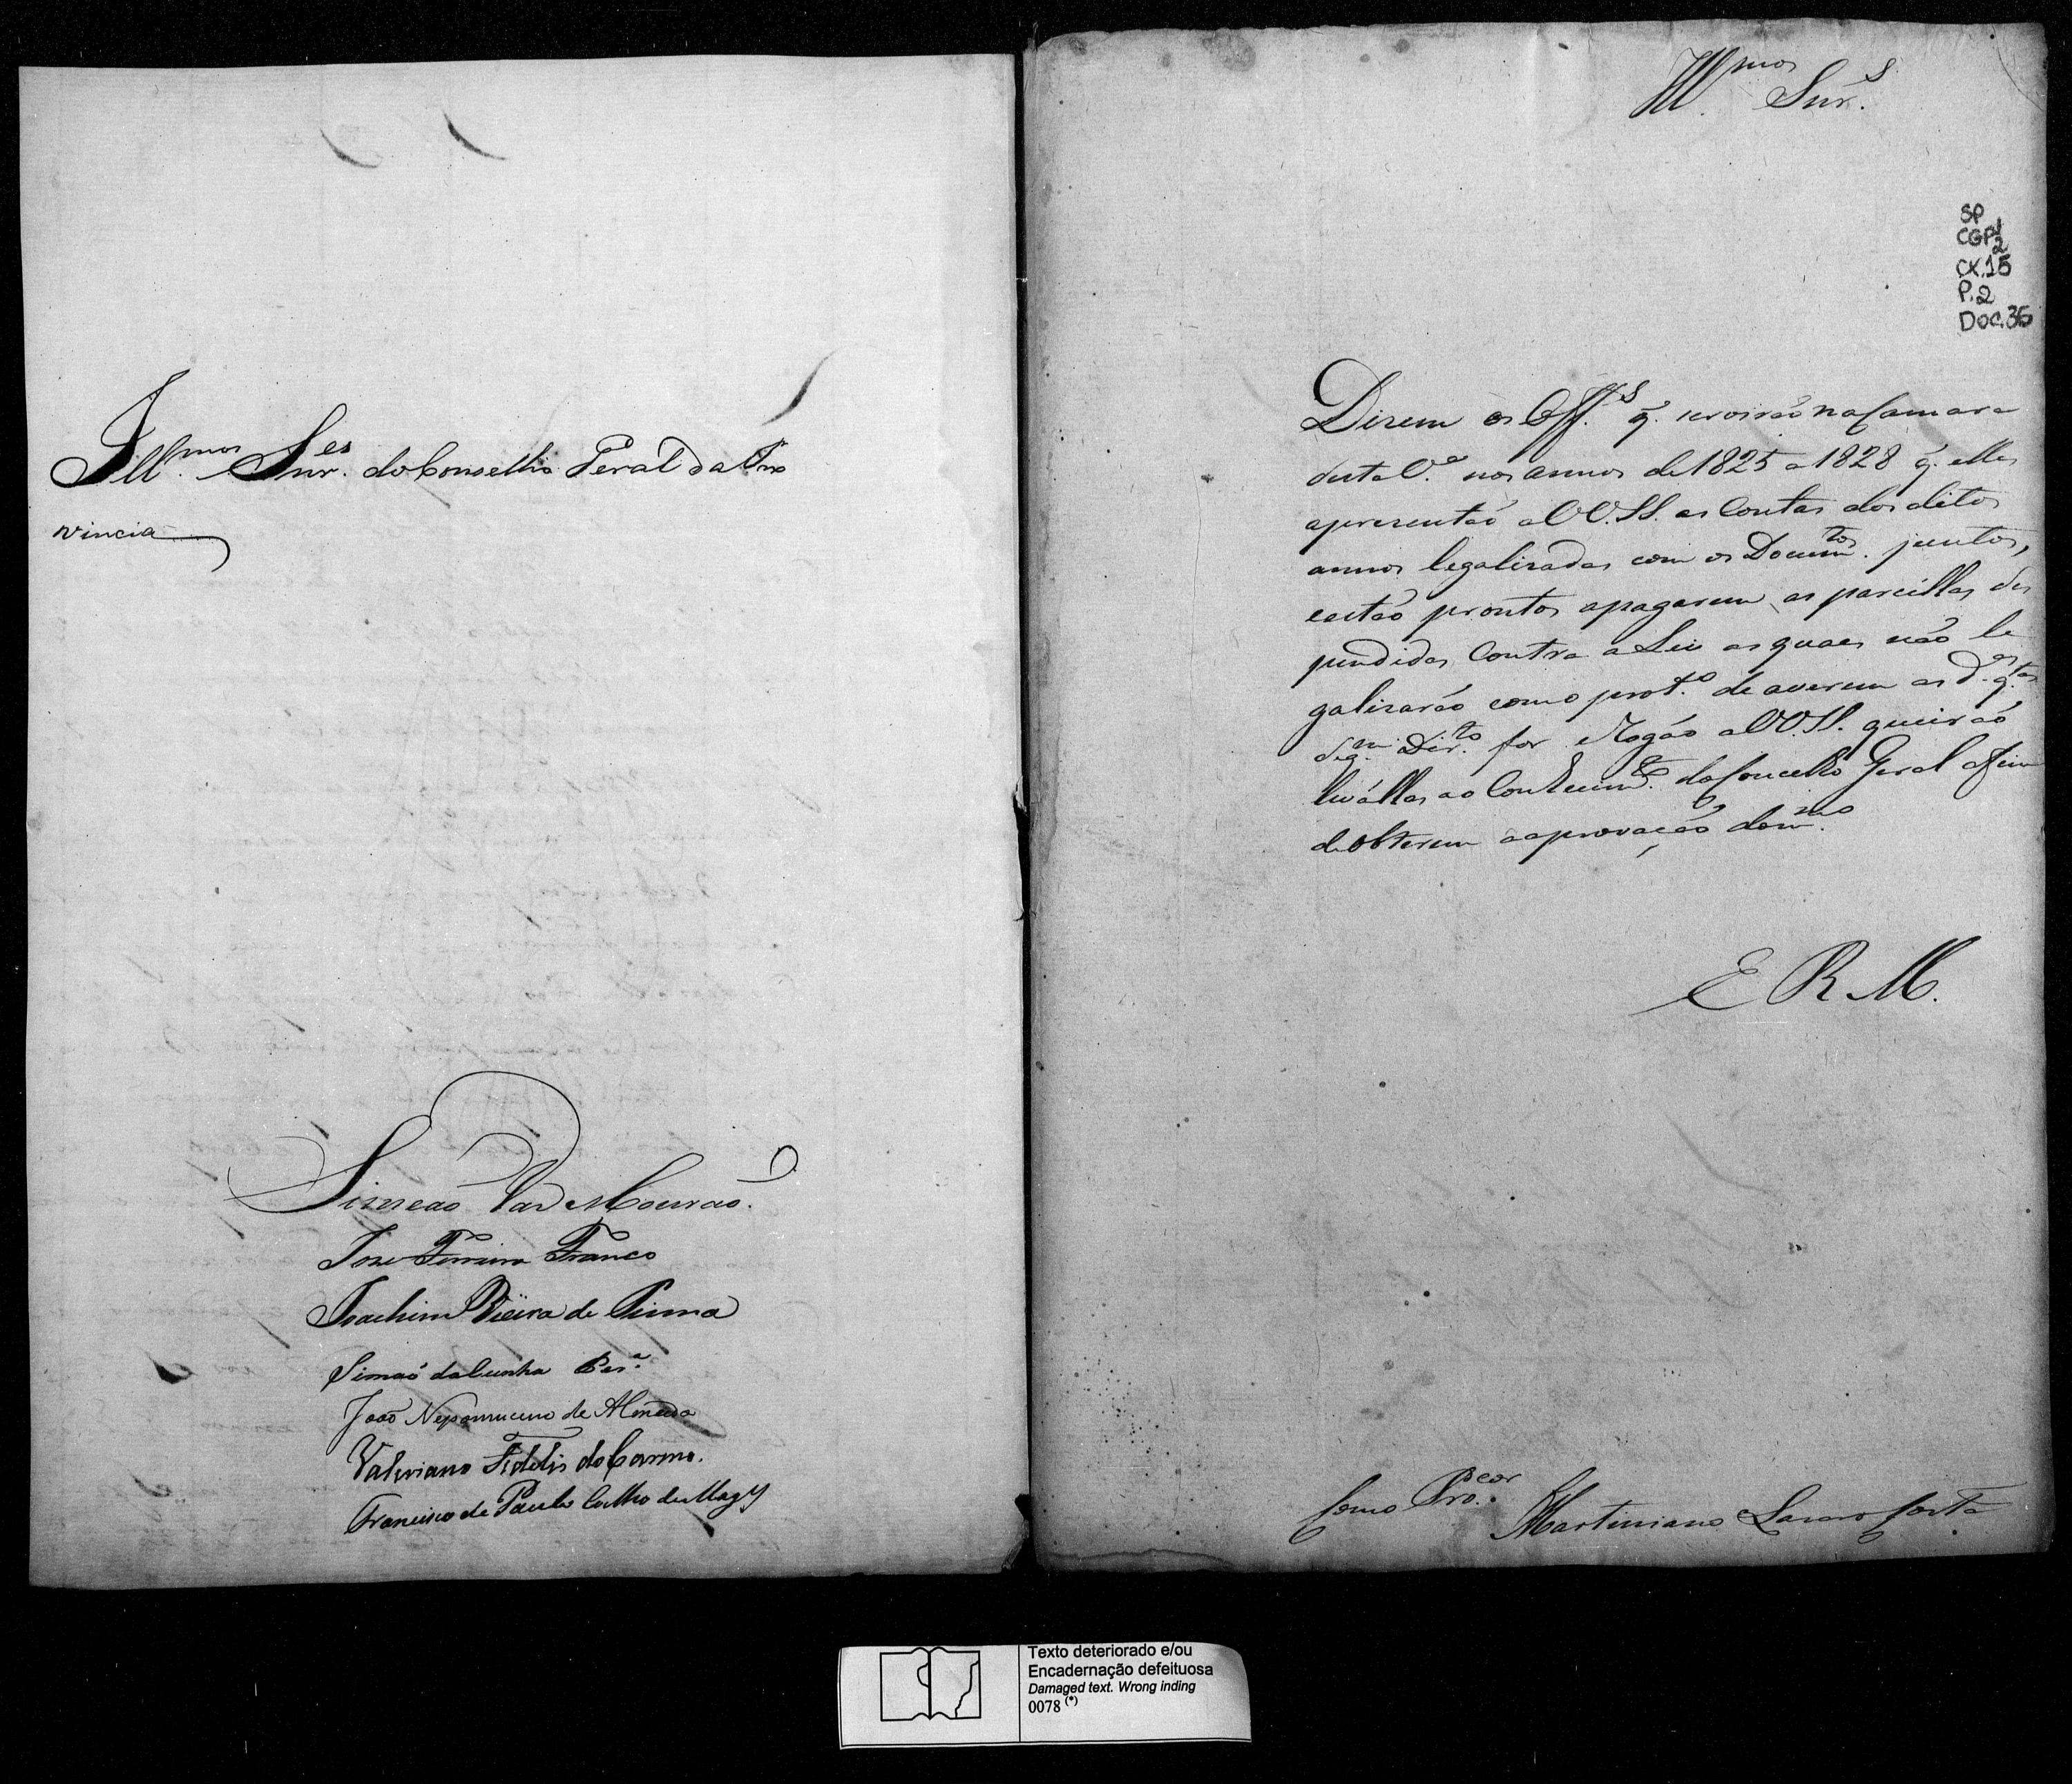 Ill.mos Snr.es do Conselho Geral da Pro
vincia
Simeaõ Vaz Mouraõ.
Jose Ferreira Franco
Joachim Vieira de Pinna
Simaõ da Cunha Per.a
Joaõ Nepomuceno de Almeida
Valeriano Fidelis do Carmo.
Francisco de Paula Coelho de Mag.
Ill.mos Snr.s
SP
CGP1
2
CX.15
P.2
DOC.36
Dizem os Off.s q. servirão na Camara
desta V.a nos annos de 1825 a 1828 q. elles
aprezentaõ a VV.SS. as Contas dos ditos
annos legalizadas com os Docum.tos juntos,
estaõ prontos apagarem as parcellas des
pendidas Contra a Lei as quaes naõ le
galizaraõ como prot.o de averem as d.as q.tas
de q.m Dir.to for e Rogaõ a VV.SS. queiraõ
levállas ao Conhecim.to do Concelho Geral afim
de obterem a aprovaçaõ do m.mo
E R M.
Como Pro.cor Martiniano Lazaro Costa
Texto deteriorado e/ou
Encadernação defeituosa
Damaged text. Wrong inding
0078 (*)